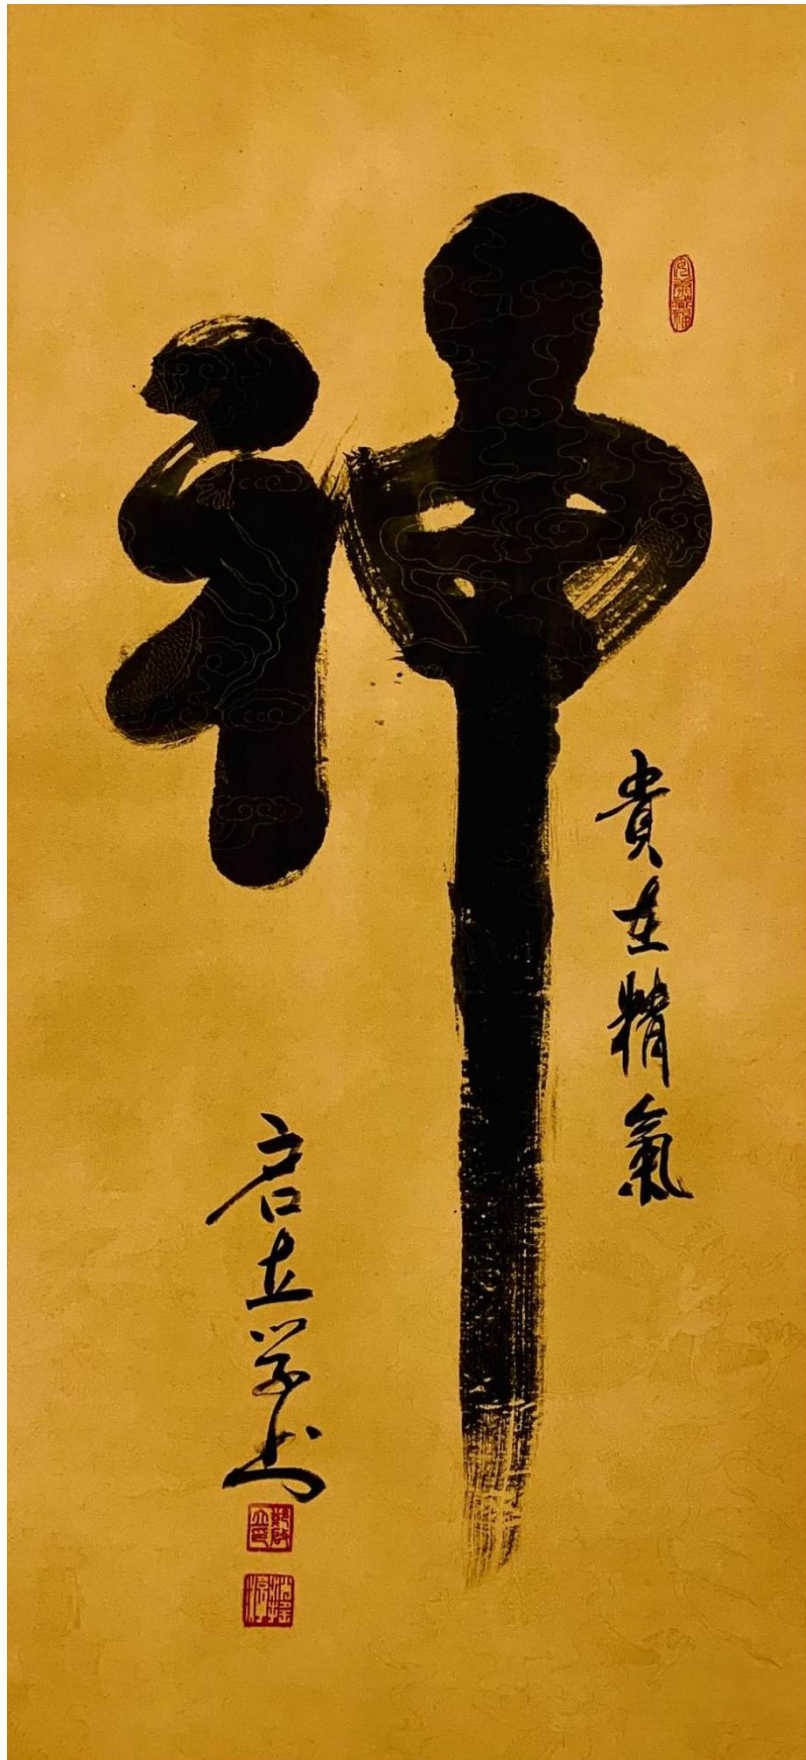 神
貴在精氣
启立学书